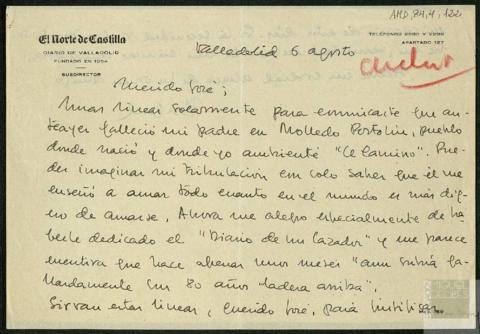 AMD,84,4,122
El Norte de Castilla
DIARIO DE VALLADOLID
FUNDADO EN 1854
SUBDIRECTOR
TELÉFONOS 2090 Y 2998
APARTADO 127
Valladolid 6 agosto
Querido José;
Unas líneas solamente para comunicarte que an-
teayer falleció mi padre en Molledo Portolín, pueblo
donde nació y donde yo ambienté "El Camino". Pue-
des imaginar mi tribulación con solo saber que él me
enseñó a amar todo cuanto en el mundo es más dig-
no de amarse. Ahora me alegro especialmente de ha-
berle dedicado el "Diario de un Cazador" y me parece
mentira que hace apenas unos meses "aun subía ga-
llardamente sus 80 años ladera arriba".
Sirvan estas líneas, querido José, para